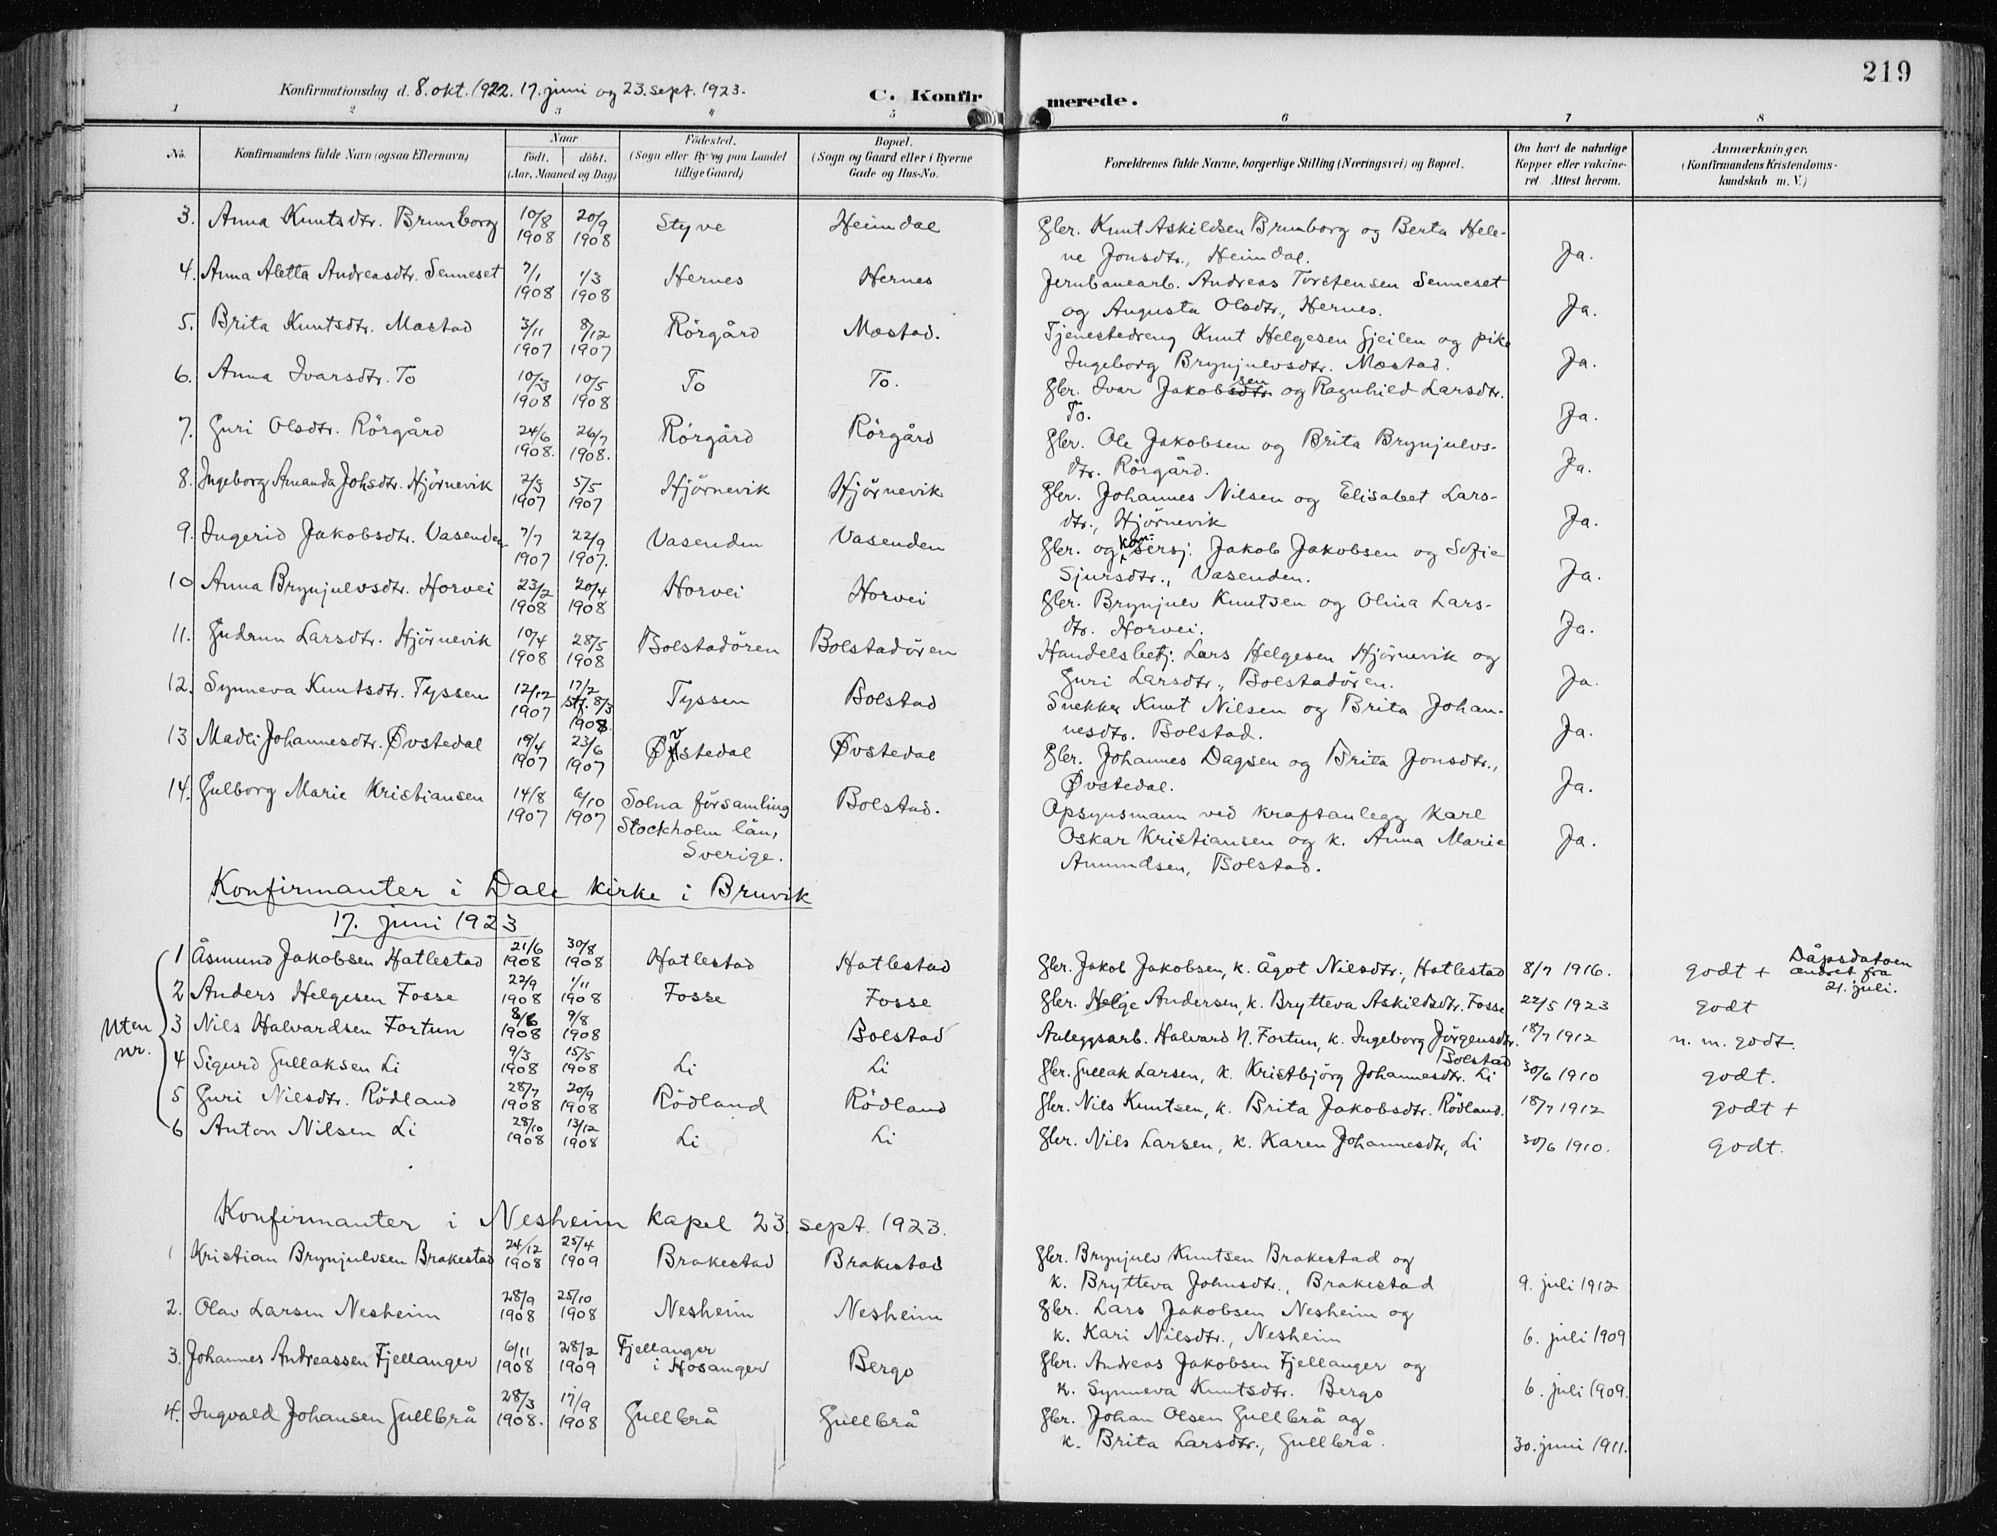 219
Konfirmationsdag d. 8. okt. 1922. 17. juni og 23. sept. 1923.
C. Konfirmerede.
1 2 3 4 5 6 7 8
No. Konfirmandens fulde Navn (ogsaa Efternavn) Naar født. døbt. (Aar, Maaned og Dag) Födested. (Sogn eller By og paa Landet tillige Gaard) Bopæl. (Sogn og Gaard eller i Byerne Gade og Hus-No. Forældrenes fulde Navne, borgerlige Stilling (Næringsvei) og Bopæl. Om havt de naturlige Kopper eller vakcineret. Attest herom. Anmærkninger. (Konfirmandens Kristendomskundskab m. V.)
3. Anna Knutsdtr. Brunborg 10/8 1908 20/9 1908 Styve Heimdal Gbr. Knut Askildsen Brunborg og Berta Hele-
ne Jonsdtr., Heimdal. Ja.
4. Anna Aletta Andreasdtr. Senneset 7/1 1908 1/3 1908 Hernes Hernes Jernbanearb. Andreas Torstensen Senneset
og Augusta Olsdtr., Hernes. Ja.
5. Brita Knutsdtr. Mæstad 3/11 1907 8/12 1907 Rörgård Mæstad. Tjenestedreng Knut Helgesen Gjeilen og pike
Ingeborg Brynjulvsdtr. Mæstad. Ja.
6. Anna Ivarsdtr. To 10/3 1908 10/5 1908 To To. Gbr. Ivar Jakobsdtr sen og Ragnhild Larsdtr.
To. Ja.
7. Guri Olsdtr. Rörgård 24/6 1908. 26/7 1908. Rörgård Rörgård Gbr. Ole Jakobsen og Brita Brynjulvs-
dtr. Rörgård. Ja.
8. Ingeborg Amanda Johsdtr. Hjørnevik 2/3 1907 5/5 1907 Hjørnevik Hjørnevik Gbr. Johannes Nilsen og Elisabet Lars-
dtr., Hjørnevik Ja.
9. Ingerid Jakobsdtr. Vasenden 7/7 1907 22/9 1907. Vasenden Vasenden Gbr. og kom. sersj. Jakob Jakobsen og Sofie
Sjursdtr., Vasenden. Ja.
10 Anna Brynjulvsdtr. Horvei 23/2 1908 20/4 1908 Horvei Horvei Gbr. Brynjulv Knutsen og Olina Lars-
dtr. Horvei. Ja.
11. Gudrun Larsdtr. Hjørnevik 10/4 1908 28/5 1908 Bolstadören Bolstadøren Handelsbetj. Lars Helgesen Hjørnevik og
Guri Larsdtr., Bolstadøren. Ja.
12. Synneva Knutsdtr. Tyssen 12/12 1907 17/2 stf. 8/3 1908. Tyssen Bolstad Snekker Knut Nilsen og Brita Johan-
nesdtr. Bolstad. Ja.
13 Madli Johannesdtr. Øvstedal 19/4 1907 23/6 1907 Øvstedal Øvstedal Gbr. Johannes Dagsen og Brita Jonsdtr.,
Øvstedal. Ja.
14. Gulborg Marie Kristiansen 14/8 1907 6/10 1907 Solna församling Stockholm län, Sverige. Bolstad. Opsynsmann ved kraftanlegg Karl
Oskar Kristiansen og k. Anna Marie Ja.
Amundsen, Bolstad.
Konfirmanter i Dale kirke i Bruvik
17. juni 1923
Uten nr.
1 Åsmund Jakobsen Hatlestad 21/6 1908 30/8 1908 Hatlestad Hatlestad Gbr. Jakob Jakobsen, k. Ågot Nilsdtr., Hatlestad 8/7 1916. godt + Dåpsdatoen ændret fra 21. juli.
2 Anders Helgesen Fosse 22/9 1908 1/11 1908 Fosse Fosse Gbr. Helge Andersen, k. Brytteva Askildsdtr. Fosse 22/5 1923 godt
3 Nils Halvardsen Fortun 8/6 1908 9/8 1908 Bolstad Anleggsarb. Halvard N. Fortun, k. Ingeborg Jørgensdtr. Bolstad 18/7 1912 n. m. godt.
4 Sigurd Gullaksen Li 9/3 1908 15/5 1908 Li Li Gbr. Gullak Larsen, k. Kristbjörg Johannesdtr. Li 30/6 1910 godt.
5 Guri Nilsdtr. Rödland 28/7 1908 20/9 1908 Rödland Rödland Gbr. Nils Knutsen, k. Brita Jakobsdtr. Rödland. 18/7 1912 godt +
6 Anton Nilsen Li 28/10 1908 13/12 1908 Li Li Gbr. Nils Larsen, k. Karen Johannesdtr, Li 30/6 1910. godt.
Konfirmanter i Nesheim kapel 23. sept. 1923.
1 Kristian Brynjulvsen Brakestad 24/12 1908 25/4 1909 Brakestad Brakestad Gbr. Brynjulv Knutsen Brakestad og
k. Brytteva Johnsdtr., Brakestad 9. juli 1912
2. Olav Larsen Nesheim 28/9 1908 25/10 1908 Nesheim Nesheim Gbr. Lars Jakobsen Nesheim og
k. Kari Nilsdtr., Nesheim 6. juli 1909
3. Johannes Andreassen Fjellanger 6/11 1908 28/2 1909 Fjellanger i Hosanger Bergo Gbr. Andreas Jakobsen Fjellanger og
k. Synneva Knutsdtr. Bergo 6. juli 1909.
4. Ingvald Johansen Gullbrå 28/3 1908. 17/9 1908 Gullbrå Gullbrå Gbr. Johan Olsen Gullbrå og
k. Brita Larsdtr., Gullbrå. 30. juni 1911.